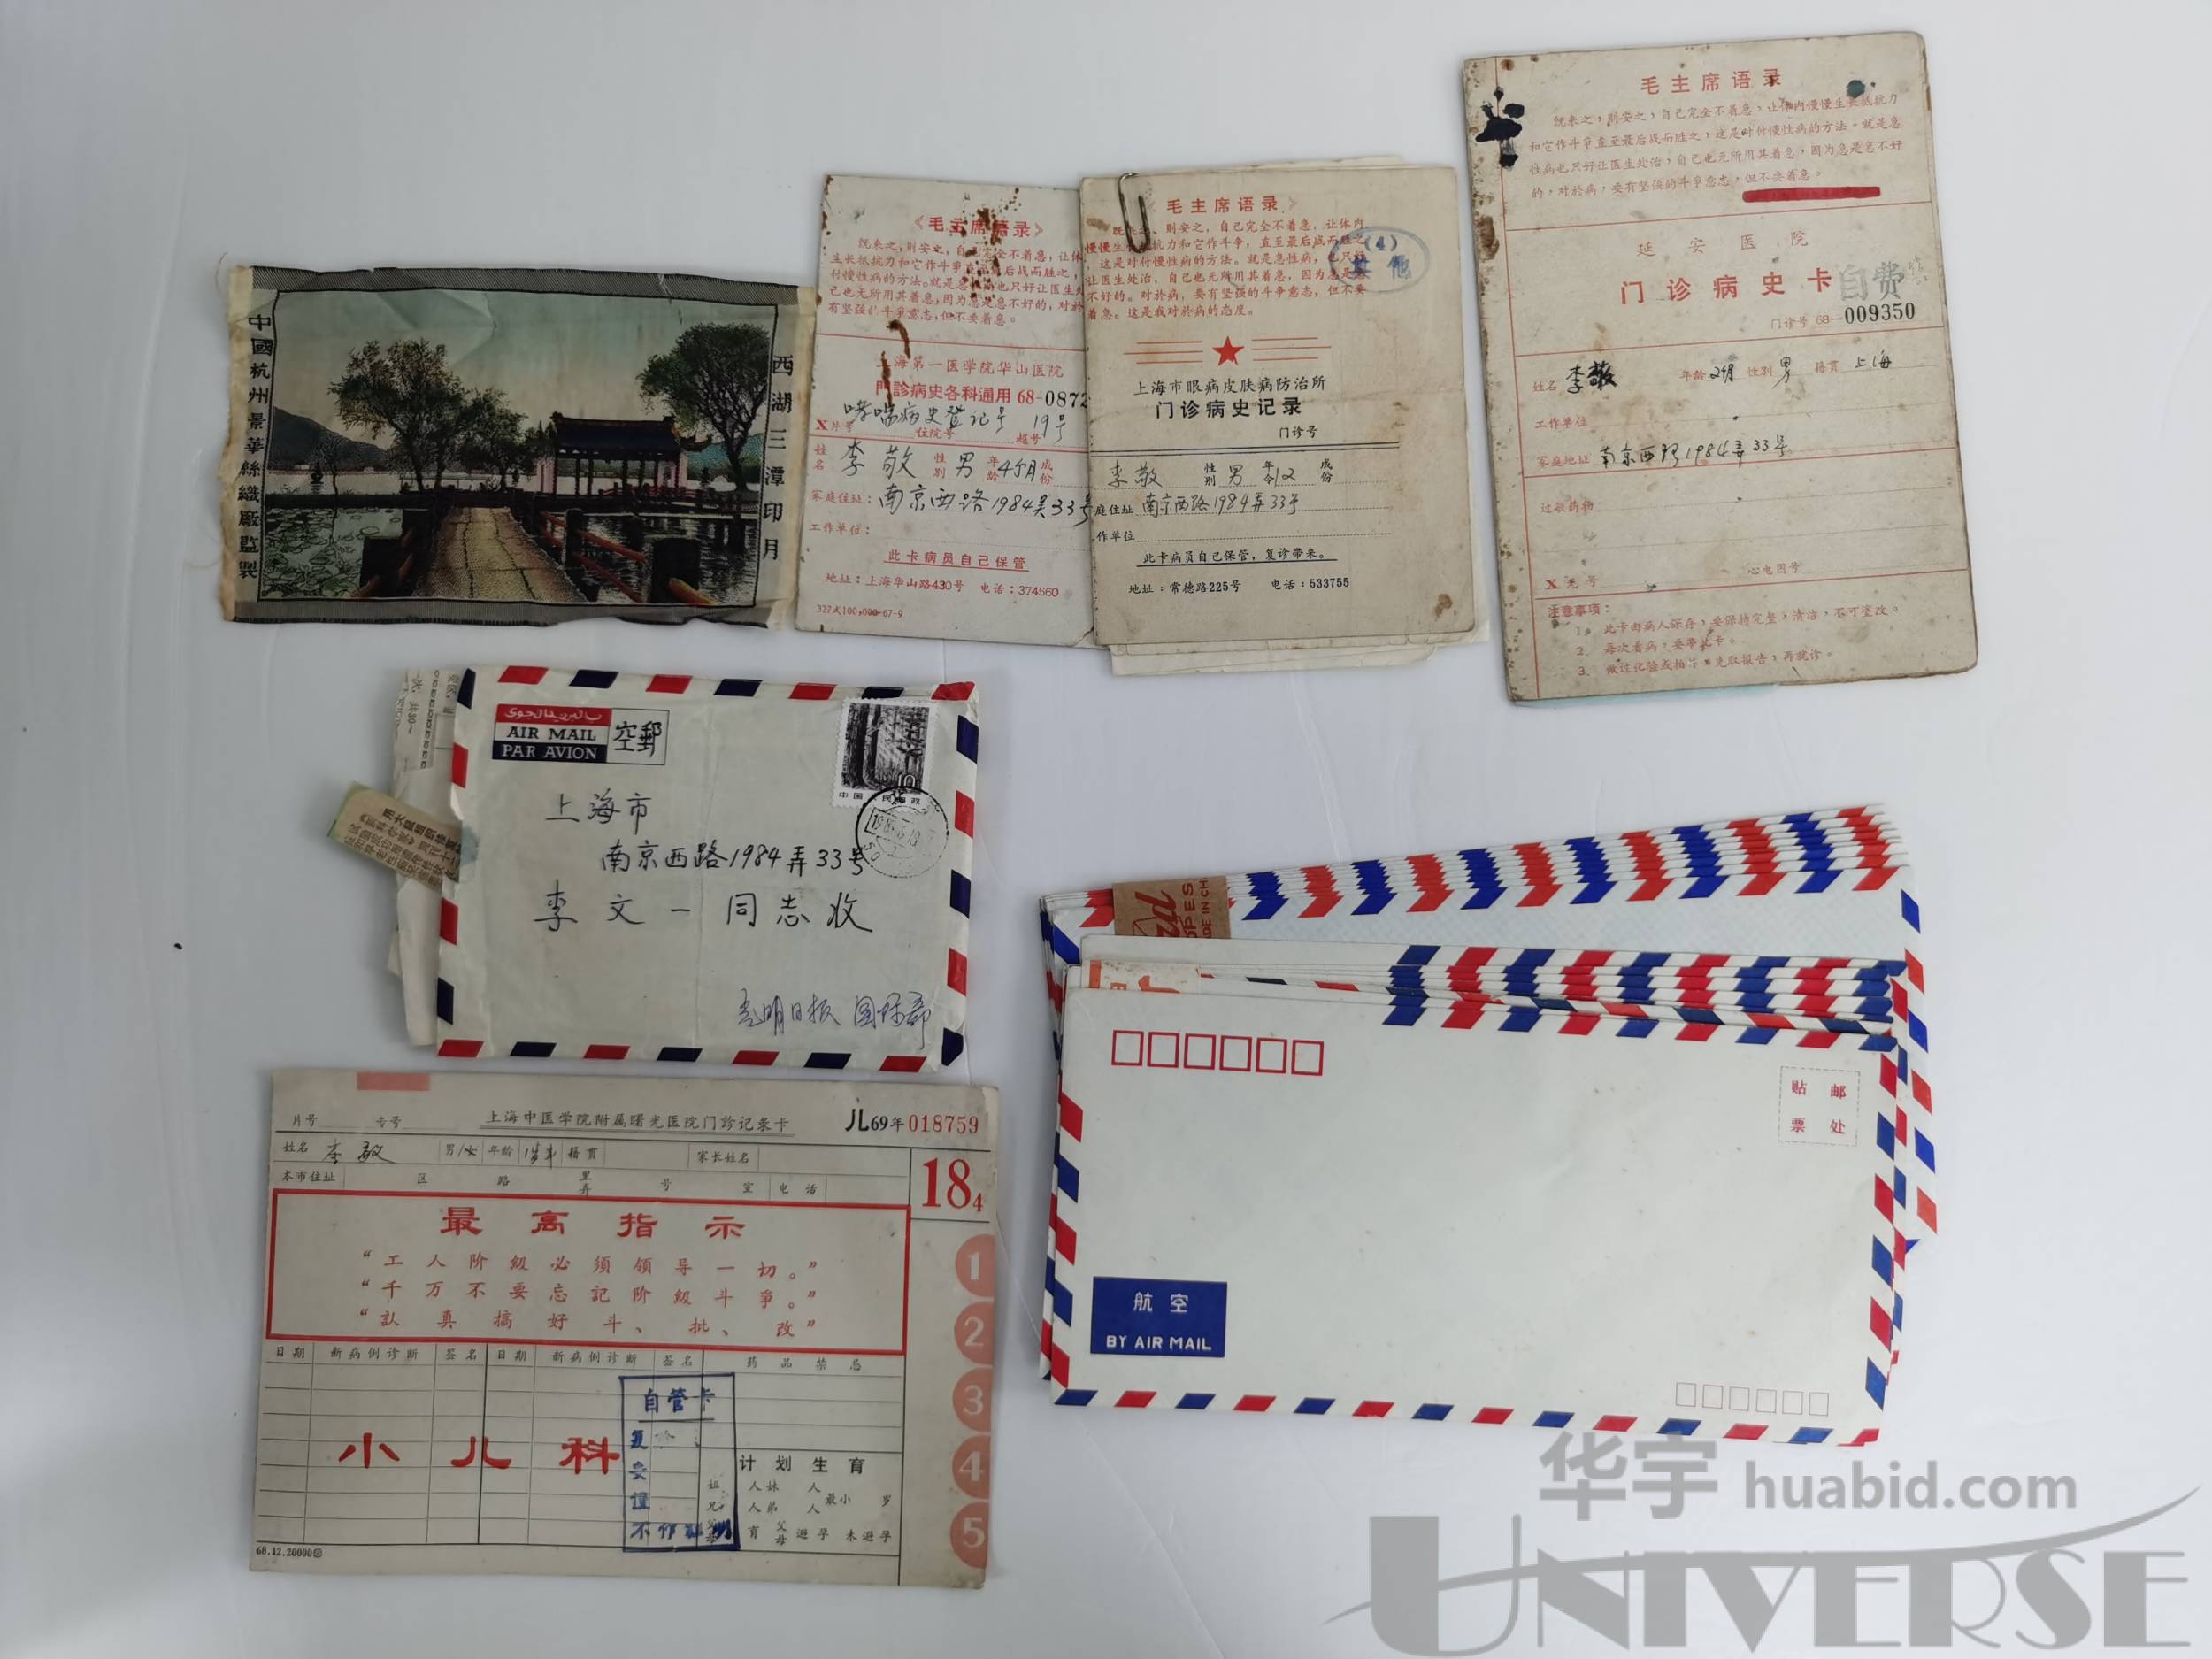 中國杭州景華絲織廠監製
西湖三潭印月
《毛主席语录》
既来之,则安之,自己完全不着急,让体
生长抵抗力和它作斗争
付慢性病的方法。就是急
己也无所用其着急,因为急是急不好的,对於
有坚强斗争意志,但不要着急。
上海第一医学院华山医院
門診病史各科通用 68-0872
哮喘病史登记号 19号
X片号 住院号 超号
姓名 李敬 性别 男 年龄 4个月 成份
家庭住址:南京西路1984弄33号
工作单位:
此卡病员自己保管
地址:上海华山路430号 电话:374560
毛主席语录》
既来之、则安之,自己完全不着急,让体内
慢慢生长抵抗力和它作斗争,直至最后战而胜之
这是对付慢性病的方法。就是急性病,也只好
让医生处治,自己也无所用其着急,因为急是急
不好的。对於病,要有坚强的斗争意志,但不要
着急。这是我对於病的态度。
(4)
其他
上海市眼病皮肤病防治所
门诊病史记录
门诊号
李敬 性别 男 年令 12 成份
庭住址 南京西路1984弄33号
作单位
此卡病员自己保管,复诊带来。
地址:常德路225号 电话:533755
毛主席语录
既来之,则安之,自己完全不着急,让体内慢慢生长抵抗力
和它作斗争直至最后战而胜之,这是对付慢性病的方法。就是急
性病也只好让医生处治,自己也无所用其着急,因为急是急不好
的,对於病,要有坚强的斗争意志,但不要着急。
延安医院
门诊病史卡 自费
门诊号 68-009350
姓名 李敬 年龄 2月 性别 男 籍贯 上海
工作单位
家庭地址 南京西路1984弄33号
过敏药物
X光号 心电图号
注意事项:
1. 此卡由病人保存,要保持完整,清洁,不可塗改。
2. 每次看病,要带此卡。
3. 做过化验或拍片,先取报告,再就诊。
AIR MAIL
PAR AVION
空郵
10
中国人民邮政
上海市
南京西路1984弄33号
李文一同志收
光明日报 国际部
片号 专号 上海中医学院附属曙光医院门診记录卡 JL69年018759
姓名 李敬 男/女 年龄 1岁半 籍贯 家长姓名
本市住址 区 路 里弄 号 室 电话
18₄
最高指示
“工人阶級必须领导一切。”
“千万不要忘記阶級斗爭。”
“認真搞好斗、批、改”
日期 新病例诊断 签名 日期 新病例诊断 签名 药品禁忌
小儿科
自管卡
计划生育
人妹 人 最小 岁
人弟 人
育 父母 避孕 未避孕
68.12.20000
1
2
3
4
5
贴邮
票处
航空
BY AIR MAIL
华宇 huabid.com
UNIVERSE